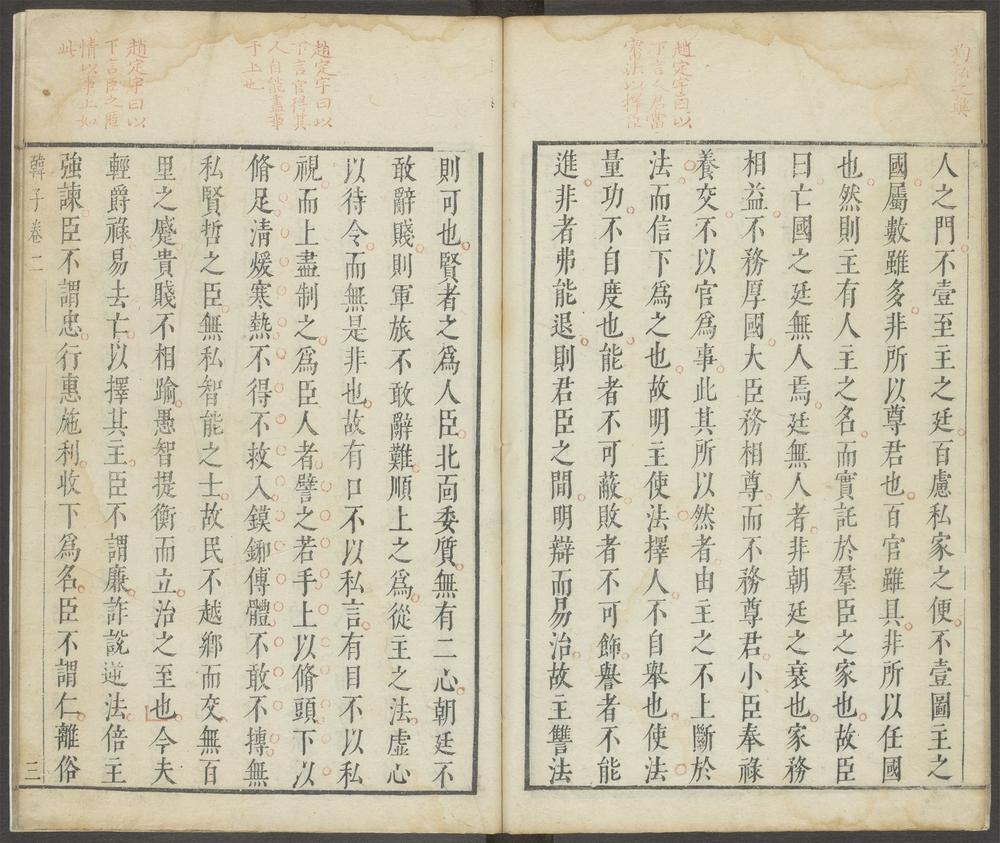 人之門不壹至主之廷百慮私家之便不壹圖主之
國屬數雖多非所以尊君也百官雖具非所以任國
也然則主有人主之名而實託於羣臣之家也故臣
曰亡國之廷無人焉廷無人者非朝廷之衰也家務
相益不務厚國大臣務相尊而不務尊君小臣奉祿
養交不以官爲事此其所以然者由主之不上斷於
法而信下爲之也故明主使法擇人不自舉也使法
量功不自度也能者不可蔽敗者不可飾譽者不能
進非者弗能退則君臣之間明辯而易治故主讐法
趙定宇曰以
下言人君當
需法以擇臣
則可也賢者之爲人臣北面委質無有二心朝廷不
敢辭賤則軍旅不敢辭難順上之爲從主之法虛心
以待令而無是非也故有口不以私言有目不以私
視而上盡制之爲臣人者譬之若手上以脩頭下以
脩足清煖寒熱不得不救入鏌鋣傅體不敢不搏無
私賢哲之臣無私智能之士故民不越鄉而交無百
里之慼貴賤不相踰愚智提衡而立治之至也今夫
輕爵祿易去亡以擇其主臣不謂廉詐說逆法倍主
強諫臣不謂忠行惠施利收下爲名臣不謂仁離俗
趙定宇曰以
下言官得其
人自能盡事
于上也
趙定宇曰以
下言臣之匪
情以事上如
此
韓子卷二
三